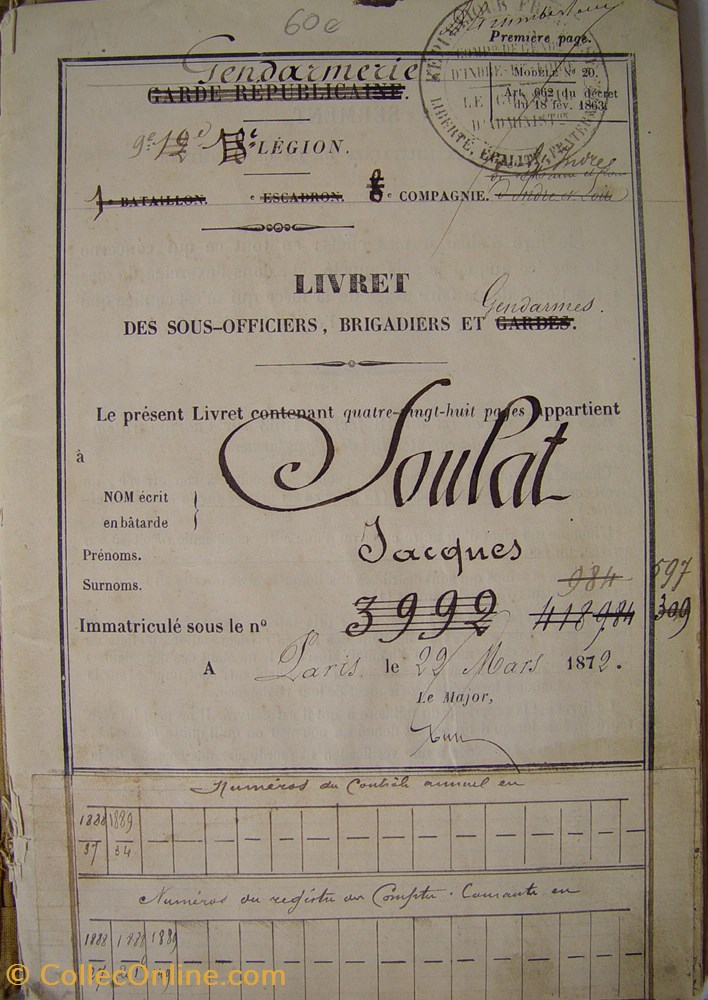 60e
Première page.
Gendarmerie
GARDE RÉPUBLICAINE.
MODÈLE No 20.
Art. 662 du décret
du 18 fév. 1863.
LIBERTÉ, ÉGALITÉ, FRATERNITÉ
D'INDRE-
9e 12e 13e LÉGION.
1e BATAILLON. e ESCADRON. e COMPAGNIE.
d'Indre et Loire
LIVRET
Gendarmes.
DES SOUS-OFFICIERS, BRIGADIERS ET GARDES.
Le présent Livret contenant quatre-vingt-huit pages appartient
à Soulat
NOM écrit
en bâtarde
Prénoms. Jacques
Surnoms. 984 597
Immatriculé sous le no 3992 418984 309
A Paris, le 22 Mars 1872.
Le Major,
Numéros du Contrôle annuel en
1888 1889
37 34
Numéros du registre des Comptes-Courants en
1888 1888 1889
© CollecOnline.com